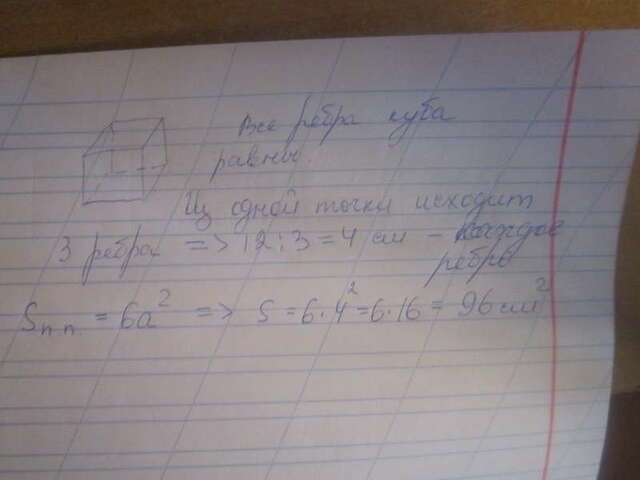 Все ребра куба
равны.
Из одной точки исходит
3 ребра => 12:3=4 см - каждое
ребро
Sп.п. = 6a² => S = 6·4² = 6·16 = 96 см²